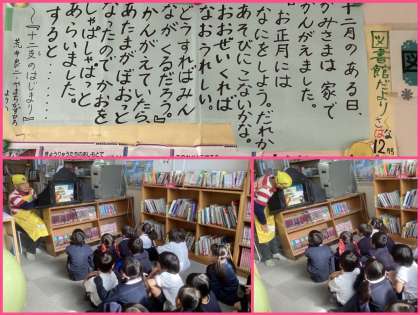 十二月のある日、
かみさまは、家で
かんがえました。
『お正月には
なにをしよう。だれか
あそびにこないかな。
おおぜいくれば
なおうれしい。
どうすればみん
ながくるだろう。』
かんがえていたら、
あたまがぼおっと
なったので、かおを
じゃばじゃばっと
あらいました。
すると・・・・・・
～『十二支のはじまり』
より～
図書館だより
12月